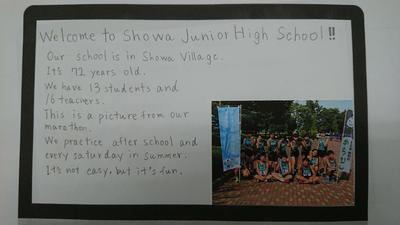 Welcome to Showa Junior High School!!
Our school is in Showa Village.
It's 72 years old.
We have 13 students and
16 teachers.
This is a picture from our
marathon.
We practice after school and
every saturday in summer.
It's not easy, but it's fun.